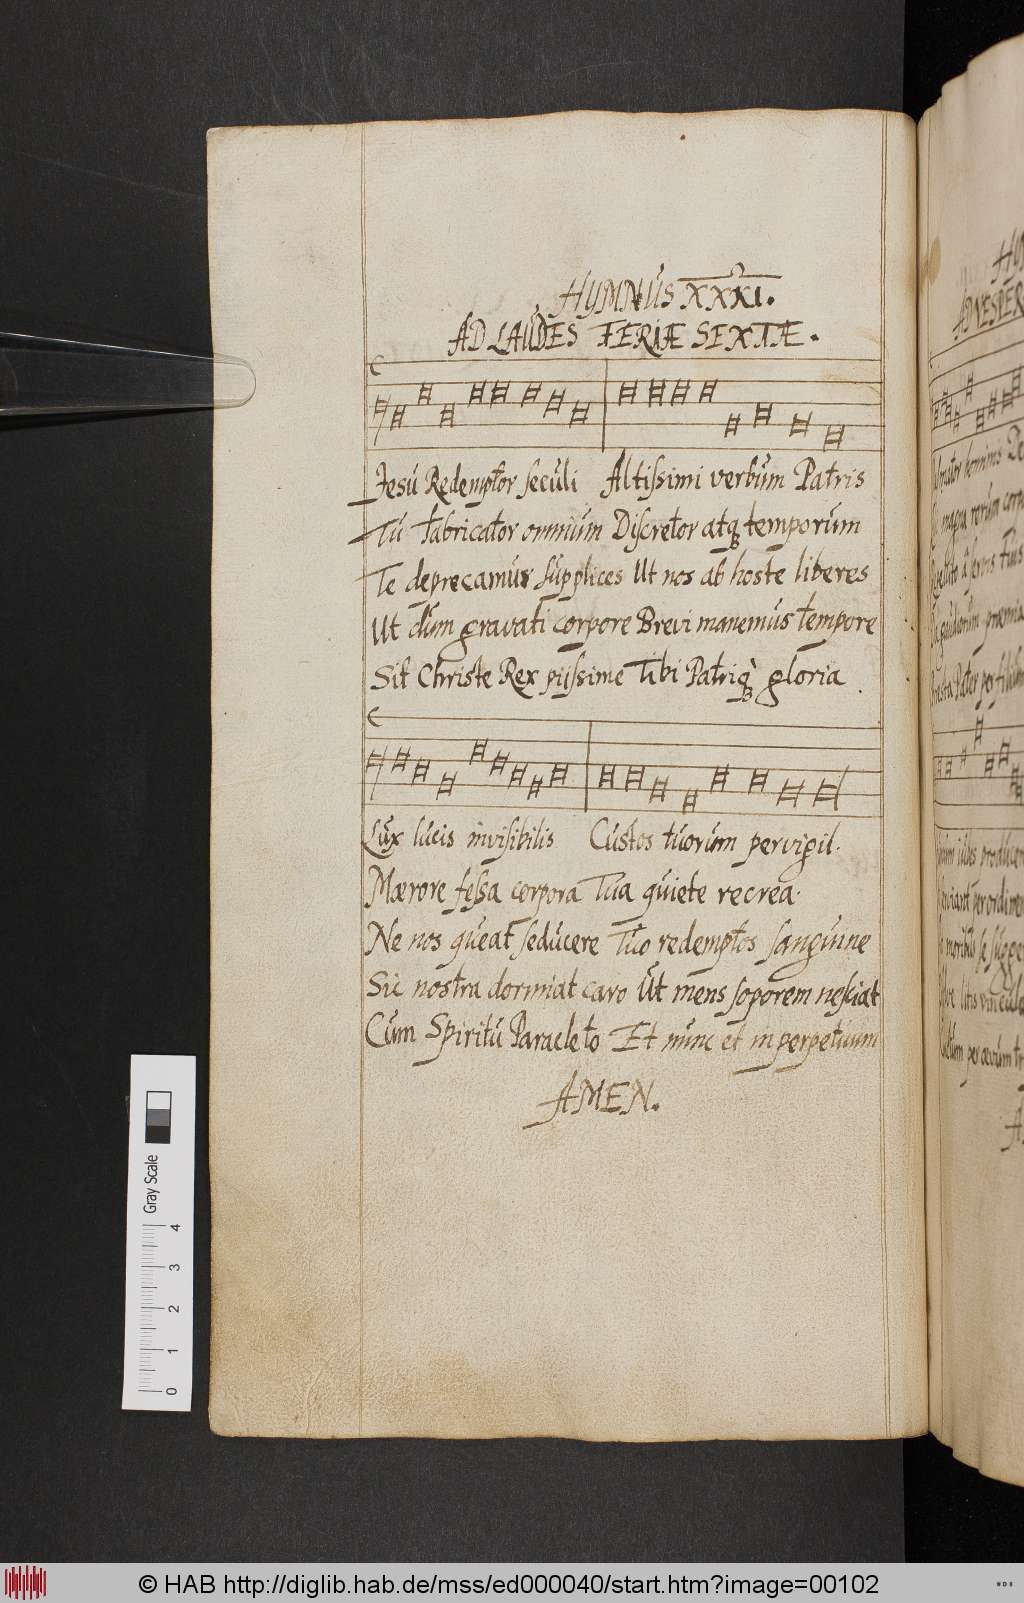 HYMNUS XXXI.
AD LAUDES FERIÆ SEXTÆ.
Jesu Redemptor seculi Altissimi verbum Patris
Tu fabricator omnium Discretor atq temporum
Te deprecamur supplices Ut nos ab hoste liberes
Ut dum gravati corpore Brevi manemus tempore
Sit Christe Rex piissime Tibi Patriq gloria
Lux lucis invisibilis Custos tuorum pervigil.
Mærore fessa corpora Tua quiete recrea.
Ne nos queat seducere Tuo redemptos sanguine
Sic nostra dormiat caro Ut mens soporem nesciat
Cum Spiritu Paracleto Et nunc et in perpetuum
AMEN.
Gray Scale
0 1 2 3 4
© HAB http://diglib.hab.de/mss/ed000040/start.htm?image=00102